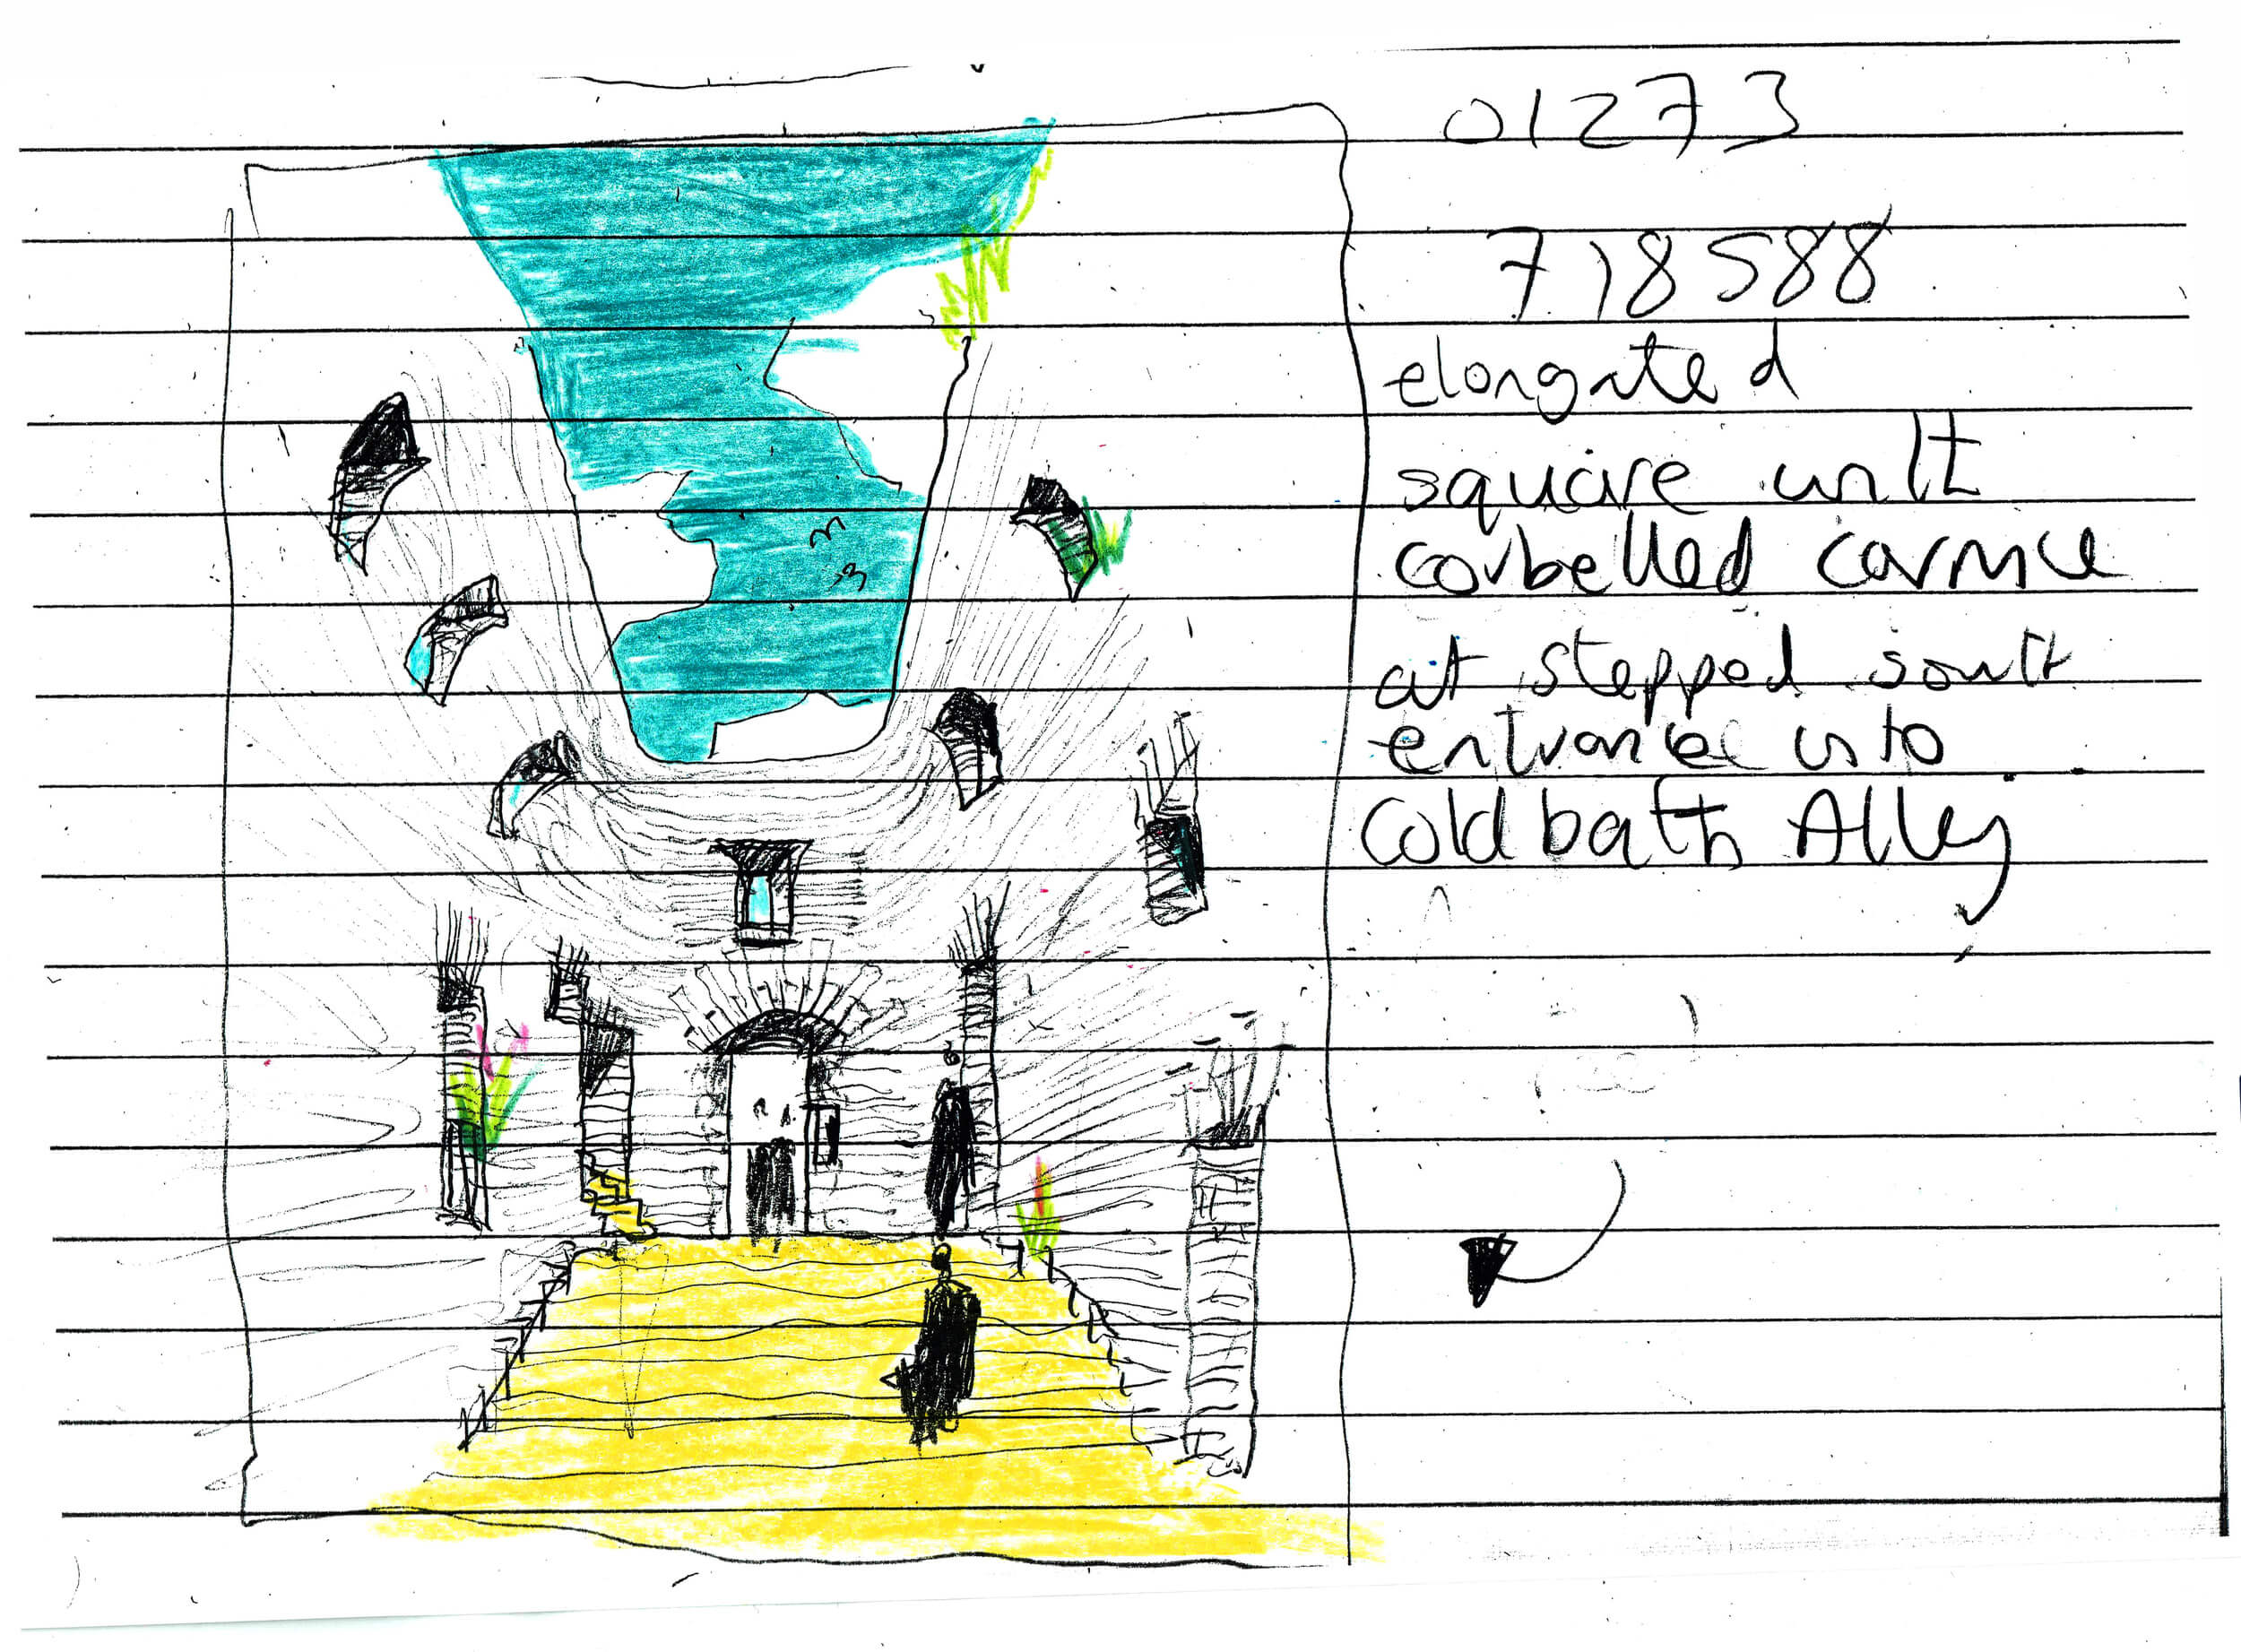 01273
718588
elongated
square with
corbelled cornice
at stepped south
entrance into
Cold bath Alley